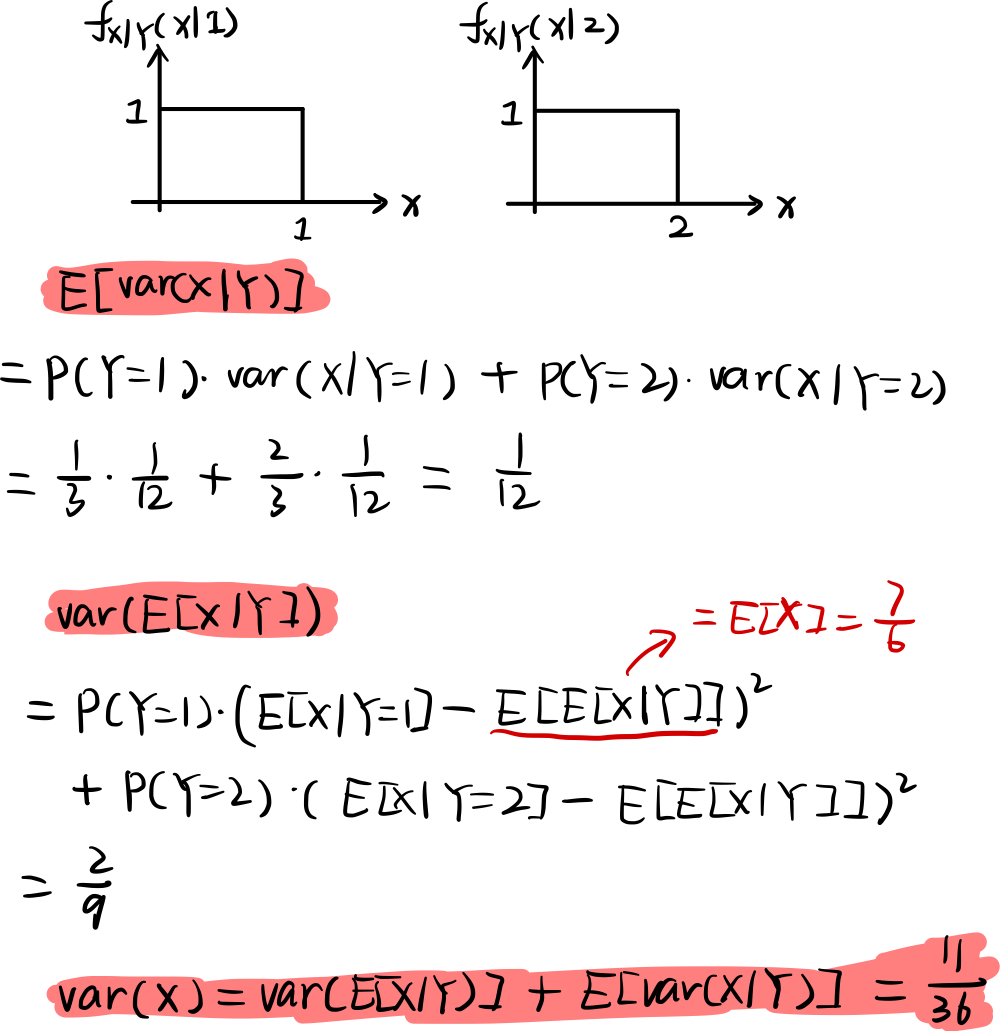 f_{X|Y}(x|1) f_{X|Y}(x|2)
1 1
x x
1 2
E[var(X|Y)]
= P(Y=1)· var(X|Y=1) + P(Y=2)· var(X|Y=2)
= 1/3 · 1/12 + 2/3 · 1/12 = 1/12
var(E[X|Y])
= E[X] = 7/6
= P(Y=1)·(E[X|Y=1] - E[E[X|Y]])²
+ P(Y=2)·(E[X|Y=2] - E[E[X|Y]])²
= 2/9
var(X) = var(E[X|Y)] + E[var(X|Y)] = 11/36